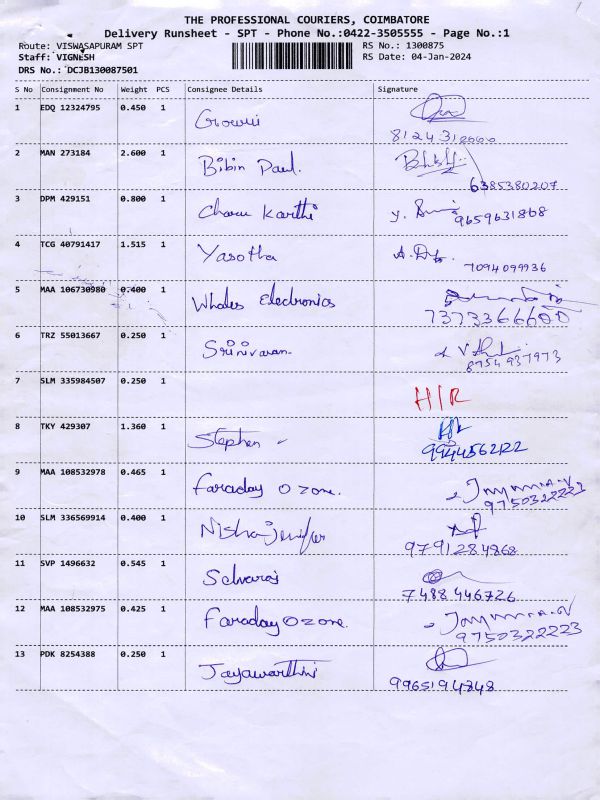 THE PROFESSIONAL COURIERS, COIMBATORE
Delivery Runsheet - SPT - Phone No.:0422-3505555 - Page No.:1
Route: VISWASAPURAM SPT RS No.: 1300875
Staff: VIGNESH RS Date: 04-Jan-2024
DRS No.: DCJB130087501
S No Consignment No Weight PCS Consignee Details Signature
1 EDQ 12324795 0.450 1 Gowri
2 MAN 273184 2.600 1 Bibin Paul.
6385380207
3 DPM 429151 0.800 1 Charu Karthi 9659631868
4 TCG 40791417 1.515 1 Yasotha
7094099936
5 MAA 106730980 0.400 1 Whales Electronics
7373366600
6 TRZ 55013667 0.250 1 Srinivasan.
8754937973
7 SLM 335984507 0.250 1 H/R
8 TKY 429307 1.360 1 Stephen
9944562122
9 MAA 108532978 0.465 1 Faraday Ozone.
9750322223
10 SLM 336569914 0.400 1 Nisha Jenifer
9791284868
11 SVP 1496632 0.545 1 Selvaraj
7488446726
12 MAA 108532975 0.425 1 Faraday Ozone.
9750322223
13 PDK 8254388 0.250 1 Jayavarthini
9965194848